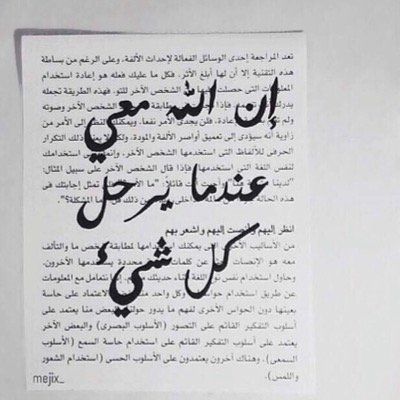 إن الله معي
عندما يرحل
كل شيئ
تعد المراجعة إحدى الوسائل الفعالة لإحداث الألفة، وعلى الرغم من بساطة
هذه التقنية إلا أن لها أبلغ الأثر. فكل ما عليك فعله هو إعادة استخدام
التي حصلت الشخص الآخر للتو، فهذه الطريقة تجعله
الشخص الآخر وصوته
عادة، فلن يجدى الأمر نفعا. إلى الأمر من
زاوية أنه سيؤدى إلى تعميق أواصر الألفة والمودة، ولكن ذلك التكرار
الحرفى للألفاظ التى استخدمها الشخص الآخر، استخدامك
لنفس اللغة التي استخدمها، فإذا قال الشخص الآخر على سبيل المثال:
"لدينا قائلا: "ما تمثل إجابتك فى
هذه ذلك المشكلة؟".
انظر إليهم وأنصت إليهم واشعر بهم
من الأساليب التى يمكنك لمطابقة شخص ما والتآلف
معه هو الإنصات عن كلمات محددة يستخدمها الآخرون.
وحاول استخدام نفس اللغة أثناء حديثك نتعامل مع المعلومات
عن طريق استخدام وكل واحد الاعتماد على حاسة
بعينها دون الحواس الأخرى لفهم ما يدور حوله، منا يعتمد على
أسلوب التفكير القائم على التصور (الأسلوب البصرى) والبعض الآخر
يعتمد على أسلوب التفكير القائم على استخدام حاسة السمع (الأسلوب
السمعى)، وهناك آخرون يعتمدون على الأسلوب الحسى (استخدام الشعور
واللمس).
mejix_